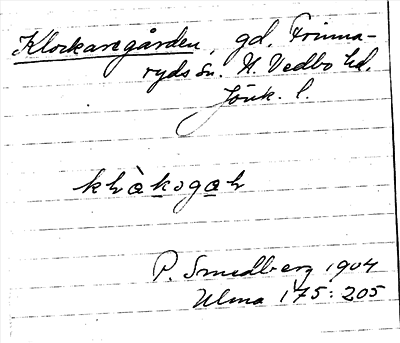 Klockaregården, gd, Frinna-
ryds sn. N. Vedbo hd.
Jönk. l.
khàkogah
P. Smedberg 1904
Ulma 175:205